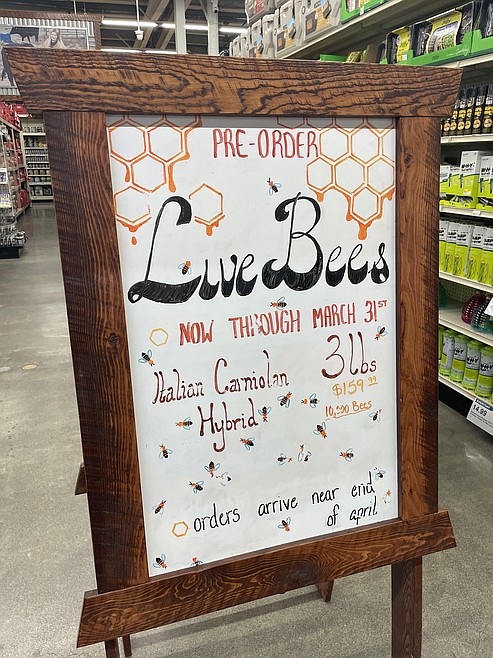 PRE-ORDER
Live Bees
NOW THROUGH MARCH 31ST
Italian Carniolan
Hybrid
3 lbs
$159.99
10,000 Bees
orders arrive near end
of april
14.99